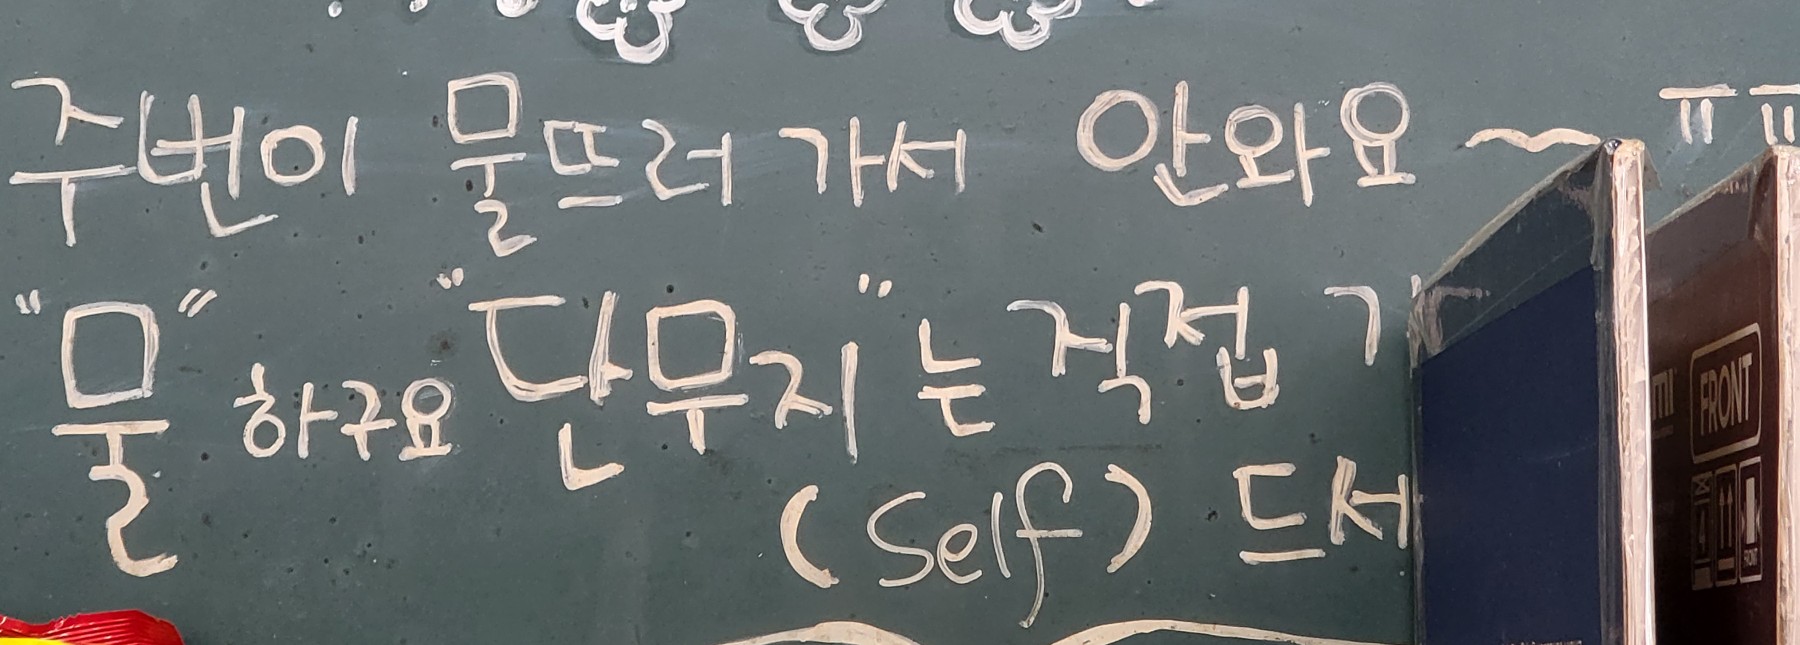 주번이 물뜨러 가서 안와요~ ㅠㅠ
"물" 하구요 "단무지"는 직접
(Self) 드서
FRONT